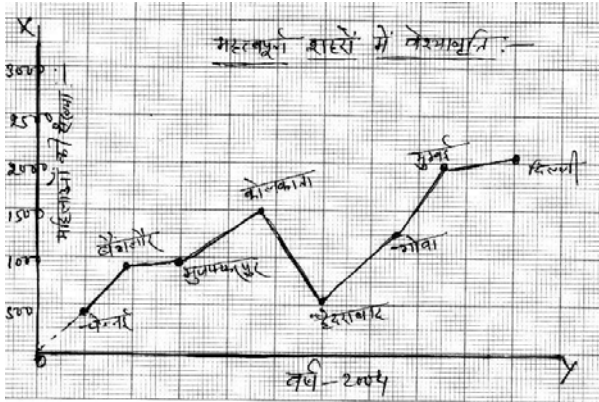 X
महत्वपूर्ण शहरों में वेश्यावृत्ति :-
3000
2500
2000
1500
1000
500
0
महिलाओं की संख्या
चेन्नई
बैंगलौर
मुजफ्फरपुर
कोलकाता
हैदराबाद
गोवा
मुम्बई
दिल्ली
Y
वर्ष - 2004